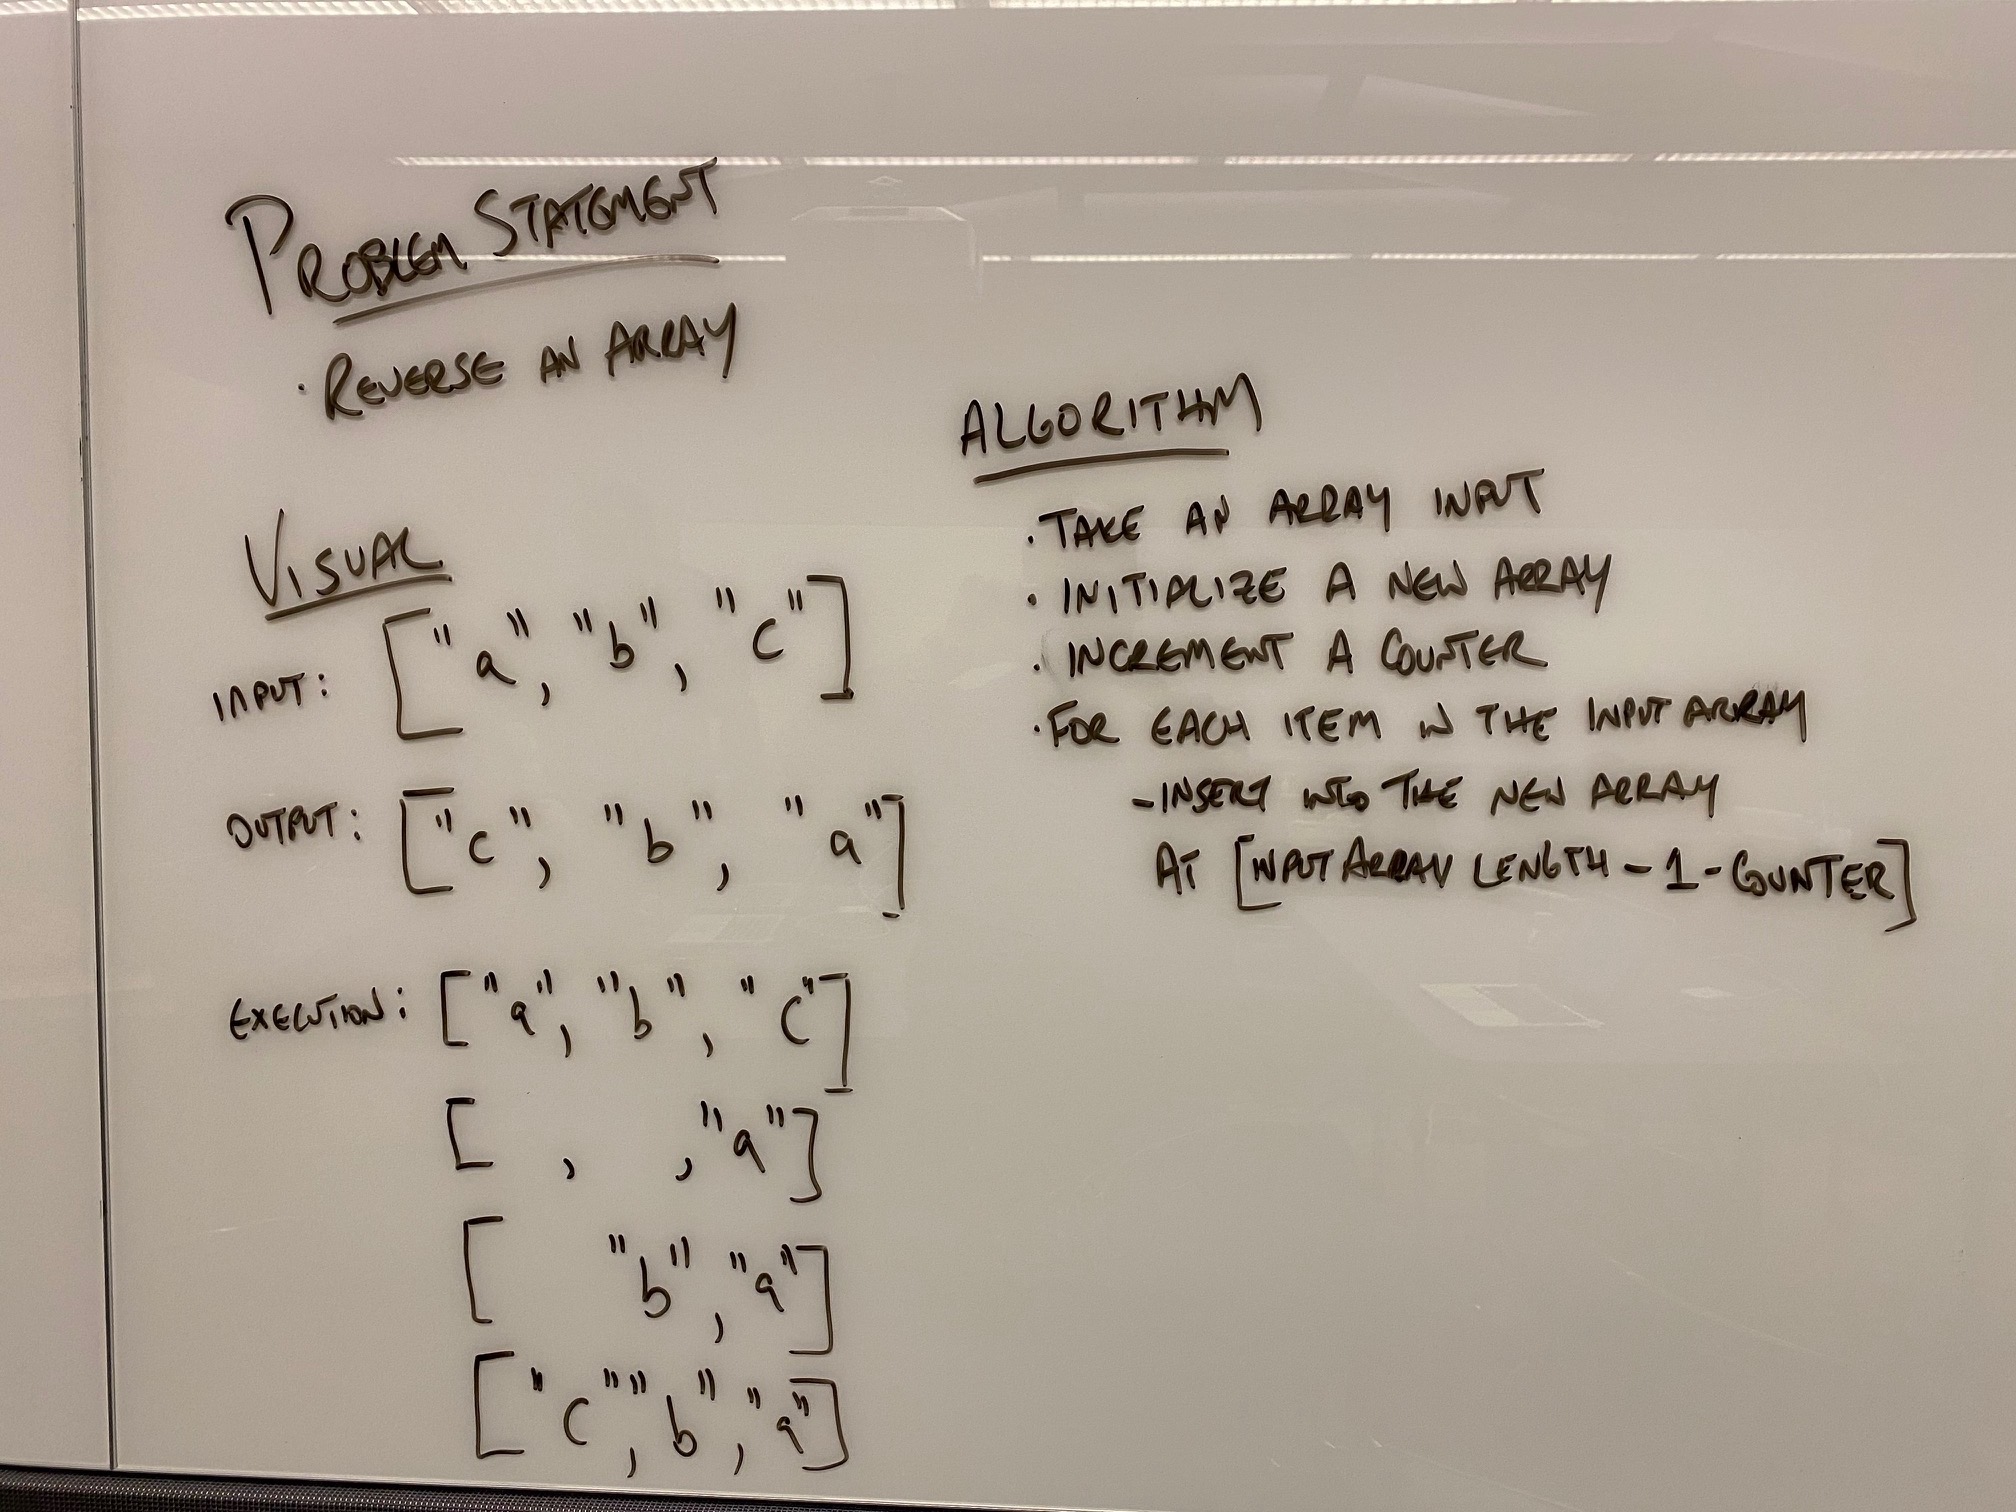 PROBLEM STATEMENT
· REVERSE AN ARRAY
VISUAL
INPUT: ["a", "b", "c"]
OUTPUT: ["c", "b", "a"]
EXECUTION: ["a", "b", "c"]
[ , , "a"]
[ "b", "a"]
["c", "b", "a"]
ALGORITHM
· TAKE AN ARRAY INPUT
· INITIALIZE A NEW ARRAY
· INCREMENT A COUNTER
· FOR EACH ITEM IN THE INPUT ARRAY
- INSERT INTO THE NEW ARRAY
AT [INPUT ARRAY LENGTH - 1 - COUNTER]